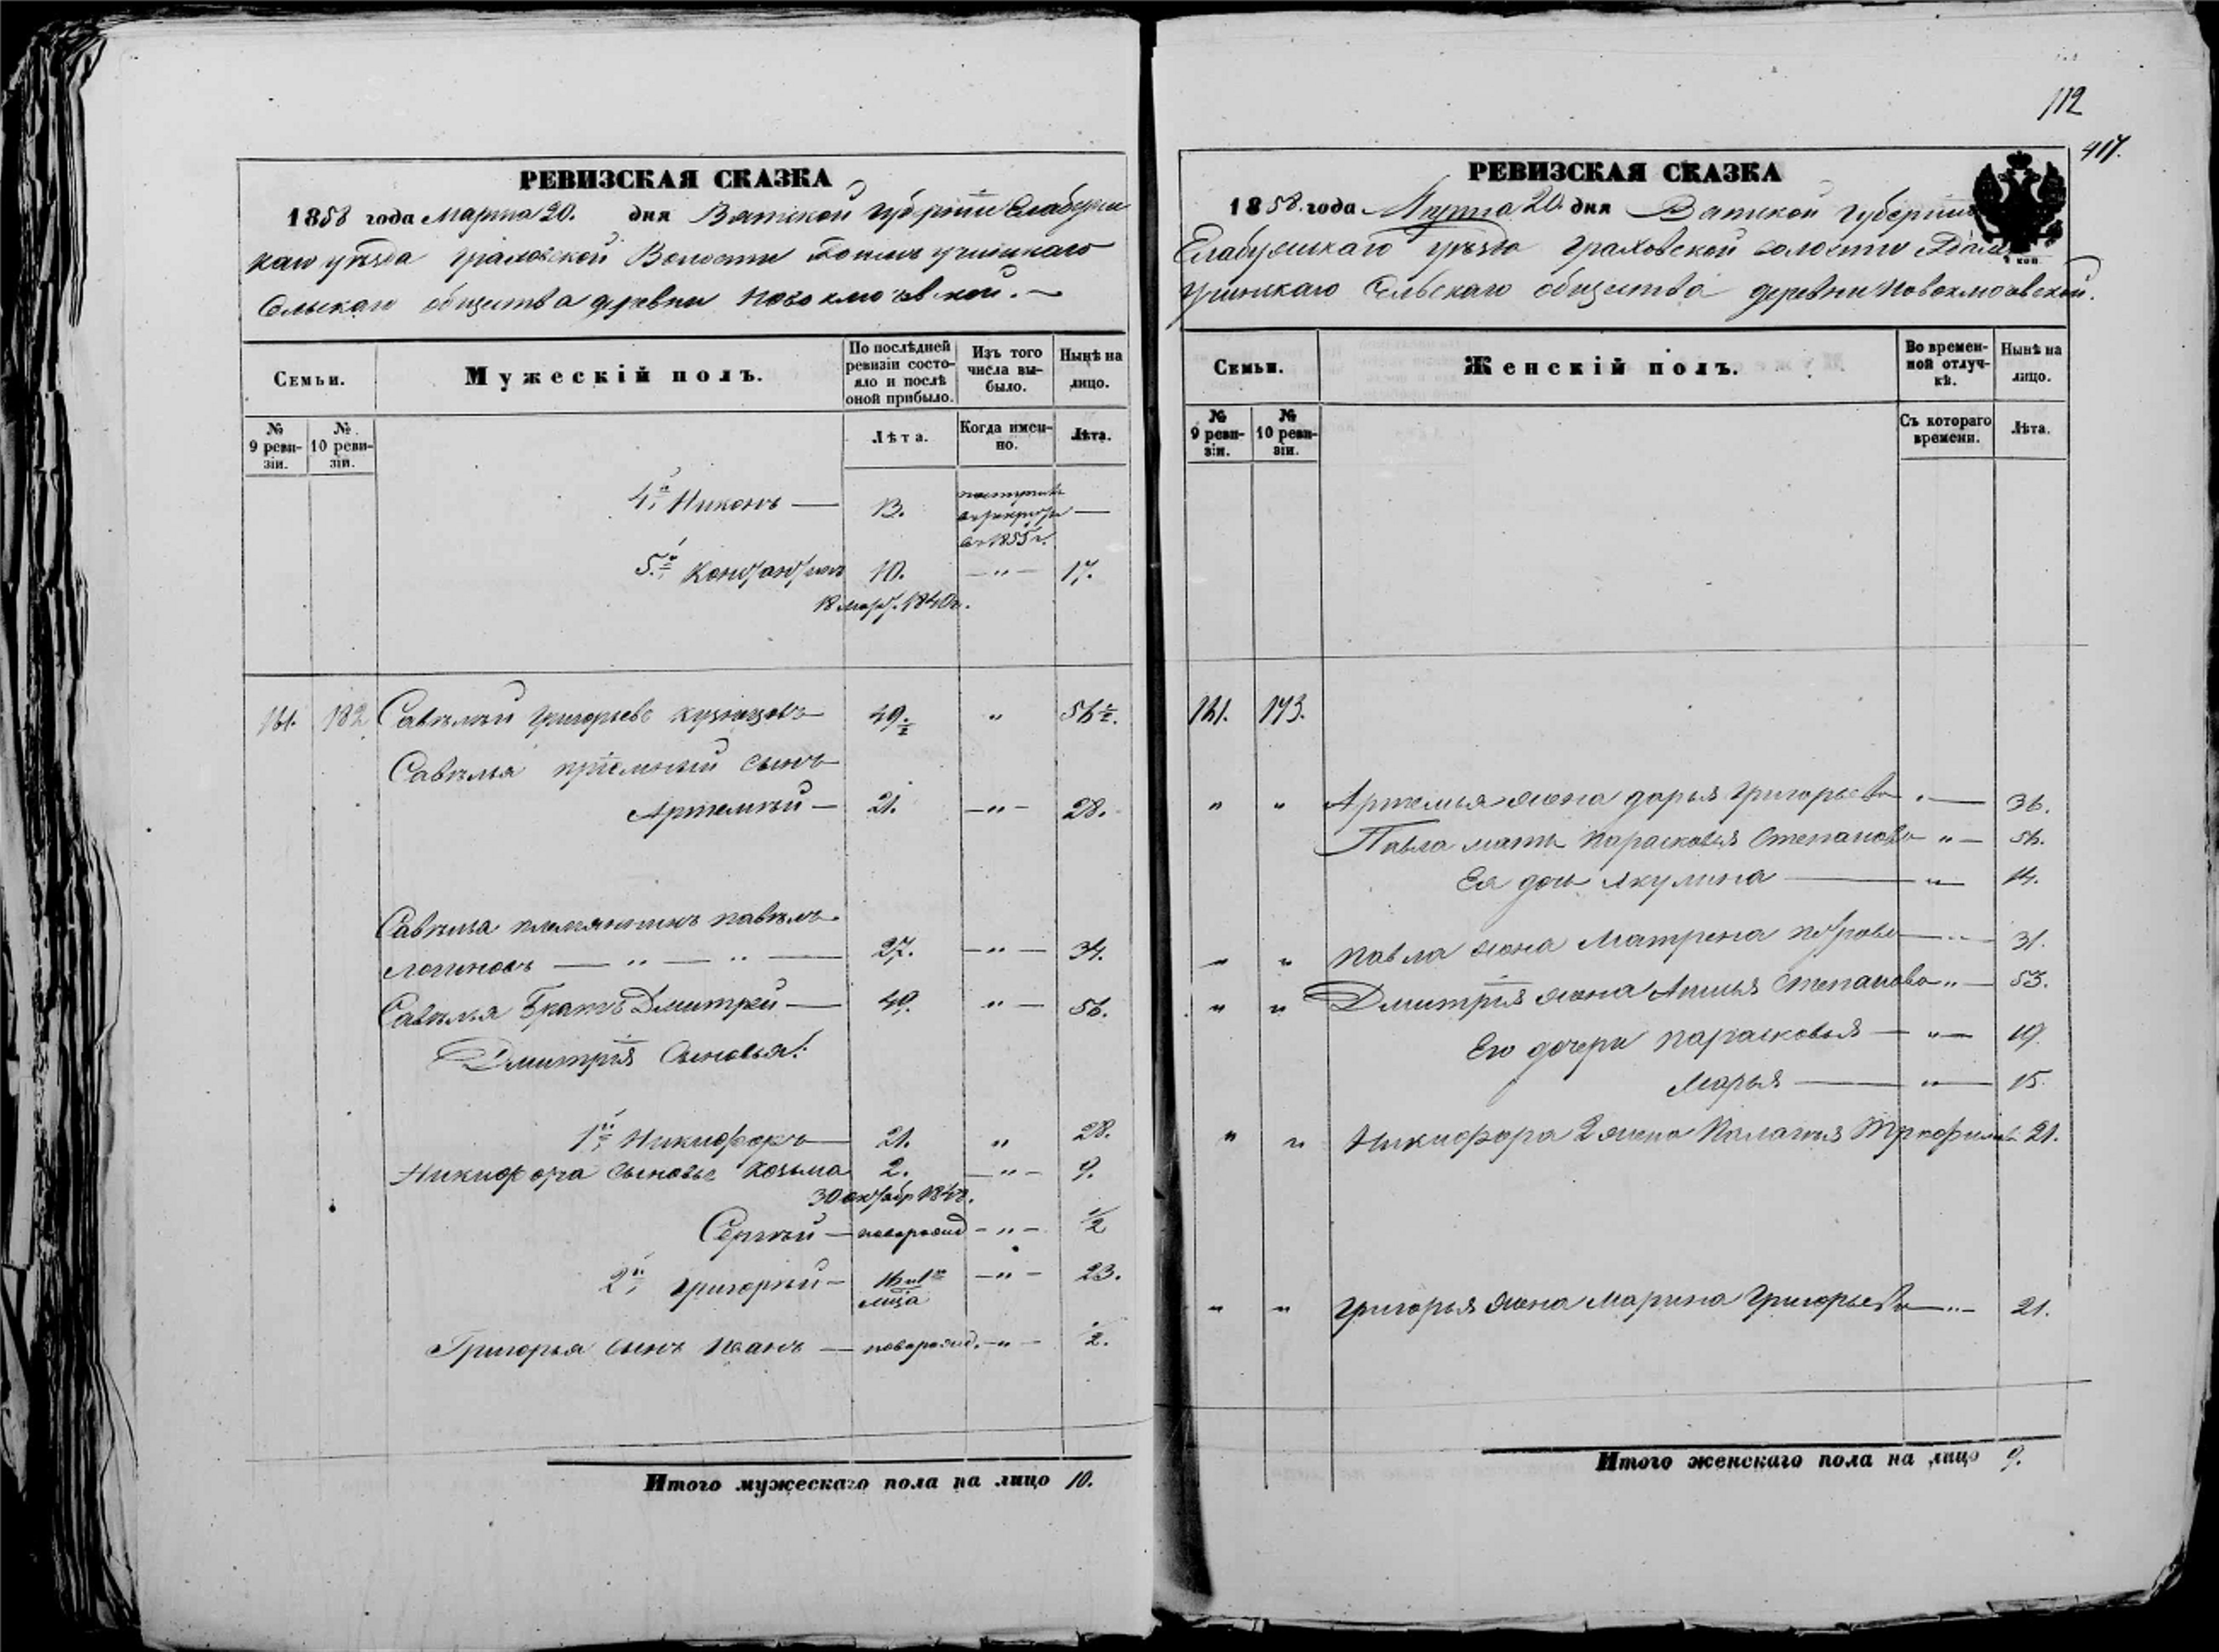 112
417.
РЕВИЗСКАЯ СКАЗКА
1858 года Марта 20. дня Вятской губернии Елабужс
каго уѣзда Граховской Волости учинскаго
Сельскаго общества деревни Новоключевской.
Семьи.
Мужескій полъ.
По послѣдней ревизіи состояло и послѣ оной прибыло.
Изъ того числа выбыло.
Нынѣ на лицо.
№ 9 ревизіи.
№ 10 ревизіи.
Лѣта.
Когда именно.
Лѣта.
4й Никонъ — 13. —
въ 1855 г.
5й Константинъ 10. — " — 17.
18 1840г.
161. 182 Савелий Григорьевъ Кузнецовъ 49 1/2 " 56 1/2.
Савелья приемный сынъ
Артемий — 21. — " — 28.
Савелья племянникъ Павелъ
Логиновъ — " — " — 27. — " — 34.
Савелья Братъ Дмитрей — 49. " — 56.
Дмитрия Сыновья:
1й Никифоръ — 21. " 28.
Никифора Сыновья Козьма 2. — " — 9.
30 октабр 1848.
Сергий — новорожд — " — 1/2
2й Григорий — 16 — " — 23.
Григорья сынъ Иванъ — новорожд. — " — 1/2.
Итого мужескаго пола на лицо 10.
РЕВИЗСКАЯ СКАЗКА
1858. года Марта 20. дня Вятской губернии
Елабужскаго уѣзда Граховской волости
учинскаго Сельскаго общества деревни Новоключевской.
Семьи.
Женскій полъ.
Во временной отлучкѣ.
Нынѣ на лицо.
№ 9 ревизіи.
№ 10 ревизіи.
Съ котораго времени.
Лѣта.
161. 193.
" " Артемья жена Дарья Григорьева " — 36.
Павла мать Парасковья Степанова " — 56.
Ея дочь Акулина — " — 14.
" " Павла жена Матрена Петрова — " — 31.
" " Дмитрия жена Анисья Степанова " — 53.
Его дочери Парасковья — " — 19.
Марья — " — 15.
" " Никифора 2 жена Палагия 21.
" " Григорья жена Марина Григорьева — " — 21.
Итого женскаго пола на лицо 9.